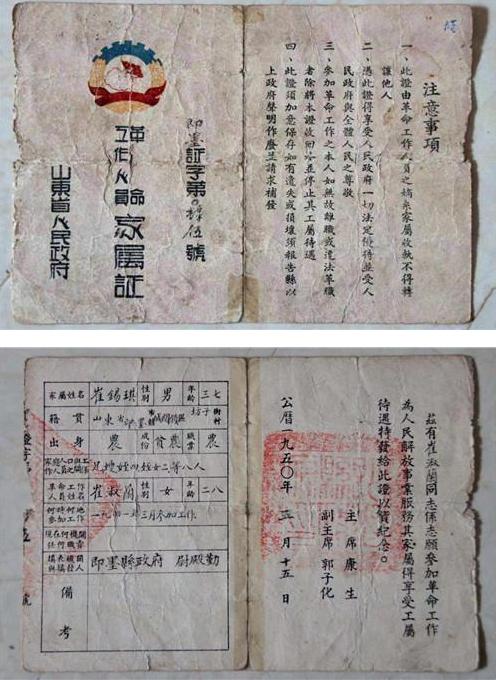 注意事項
一、此證由革命工作人員之嫡系家屬收執不得轉
讓他人
二、憑此證得享受人民政府一切法定優待並受人
民政府與全體人民之尊敬
三、參加革命工作之本人如無故離職或違法革職
者除將本證收回外並停止其工屬待遇
四、此證須加意保存如有遺失或損壞須報告縣以
上政府聲明作廢並請求補發
即墨証字第0肆伍號
革命
工作人員家屬証
山東省人民政府
茲有崔淑蘭同志係志願參加革命工作
為人民解放事業服務其家屬得享受工屬
待遇特發給此證以資紀念。
主席康生
副主席郭子化
公曆一九五〇年三月十五日
家屬姓名 崔錫琪 性別 男 年齡 三七
籍貫 山東省即墨 坊子街村
出身 農 成份 貧農 職業 農
等八人
革命工作人員姓名 崔淑蘭 性別 女 年齡 二八
何時何地參加工作 一九四一年三月參加工作
現在何機關任何職
填表機關與填發人 即墨縣政府 尉殿勤
備考